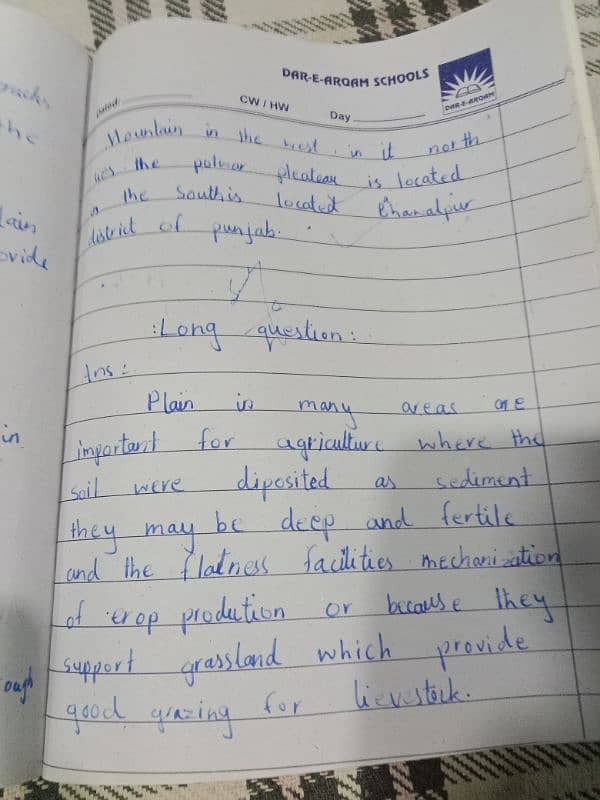 DAR-E-ARQAM SCHOOLS
DAR-E-ARQAM
Dated:
CW / HW
Day
Mountain in the west. in it north
lies the potwar pleateau is located
in the Southis located
district of punjab.
:Long question:
Ans:
Plain in many areas are
important for agriculture where the
soil were diposited as sediment
they may be deep and fertile
and the flatness facilities mechanization
of crop prodution or because they
support grassland which provide
good grazing for lievestock.
the
lain
ovide
in
ough